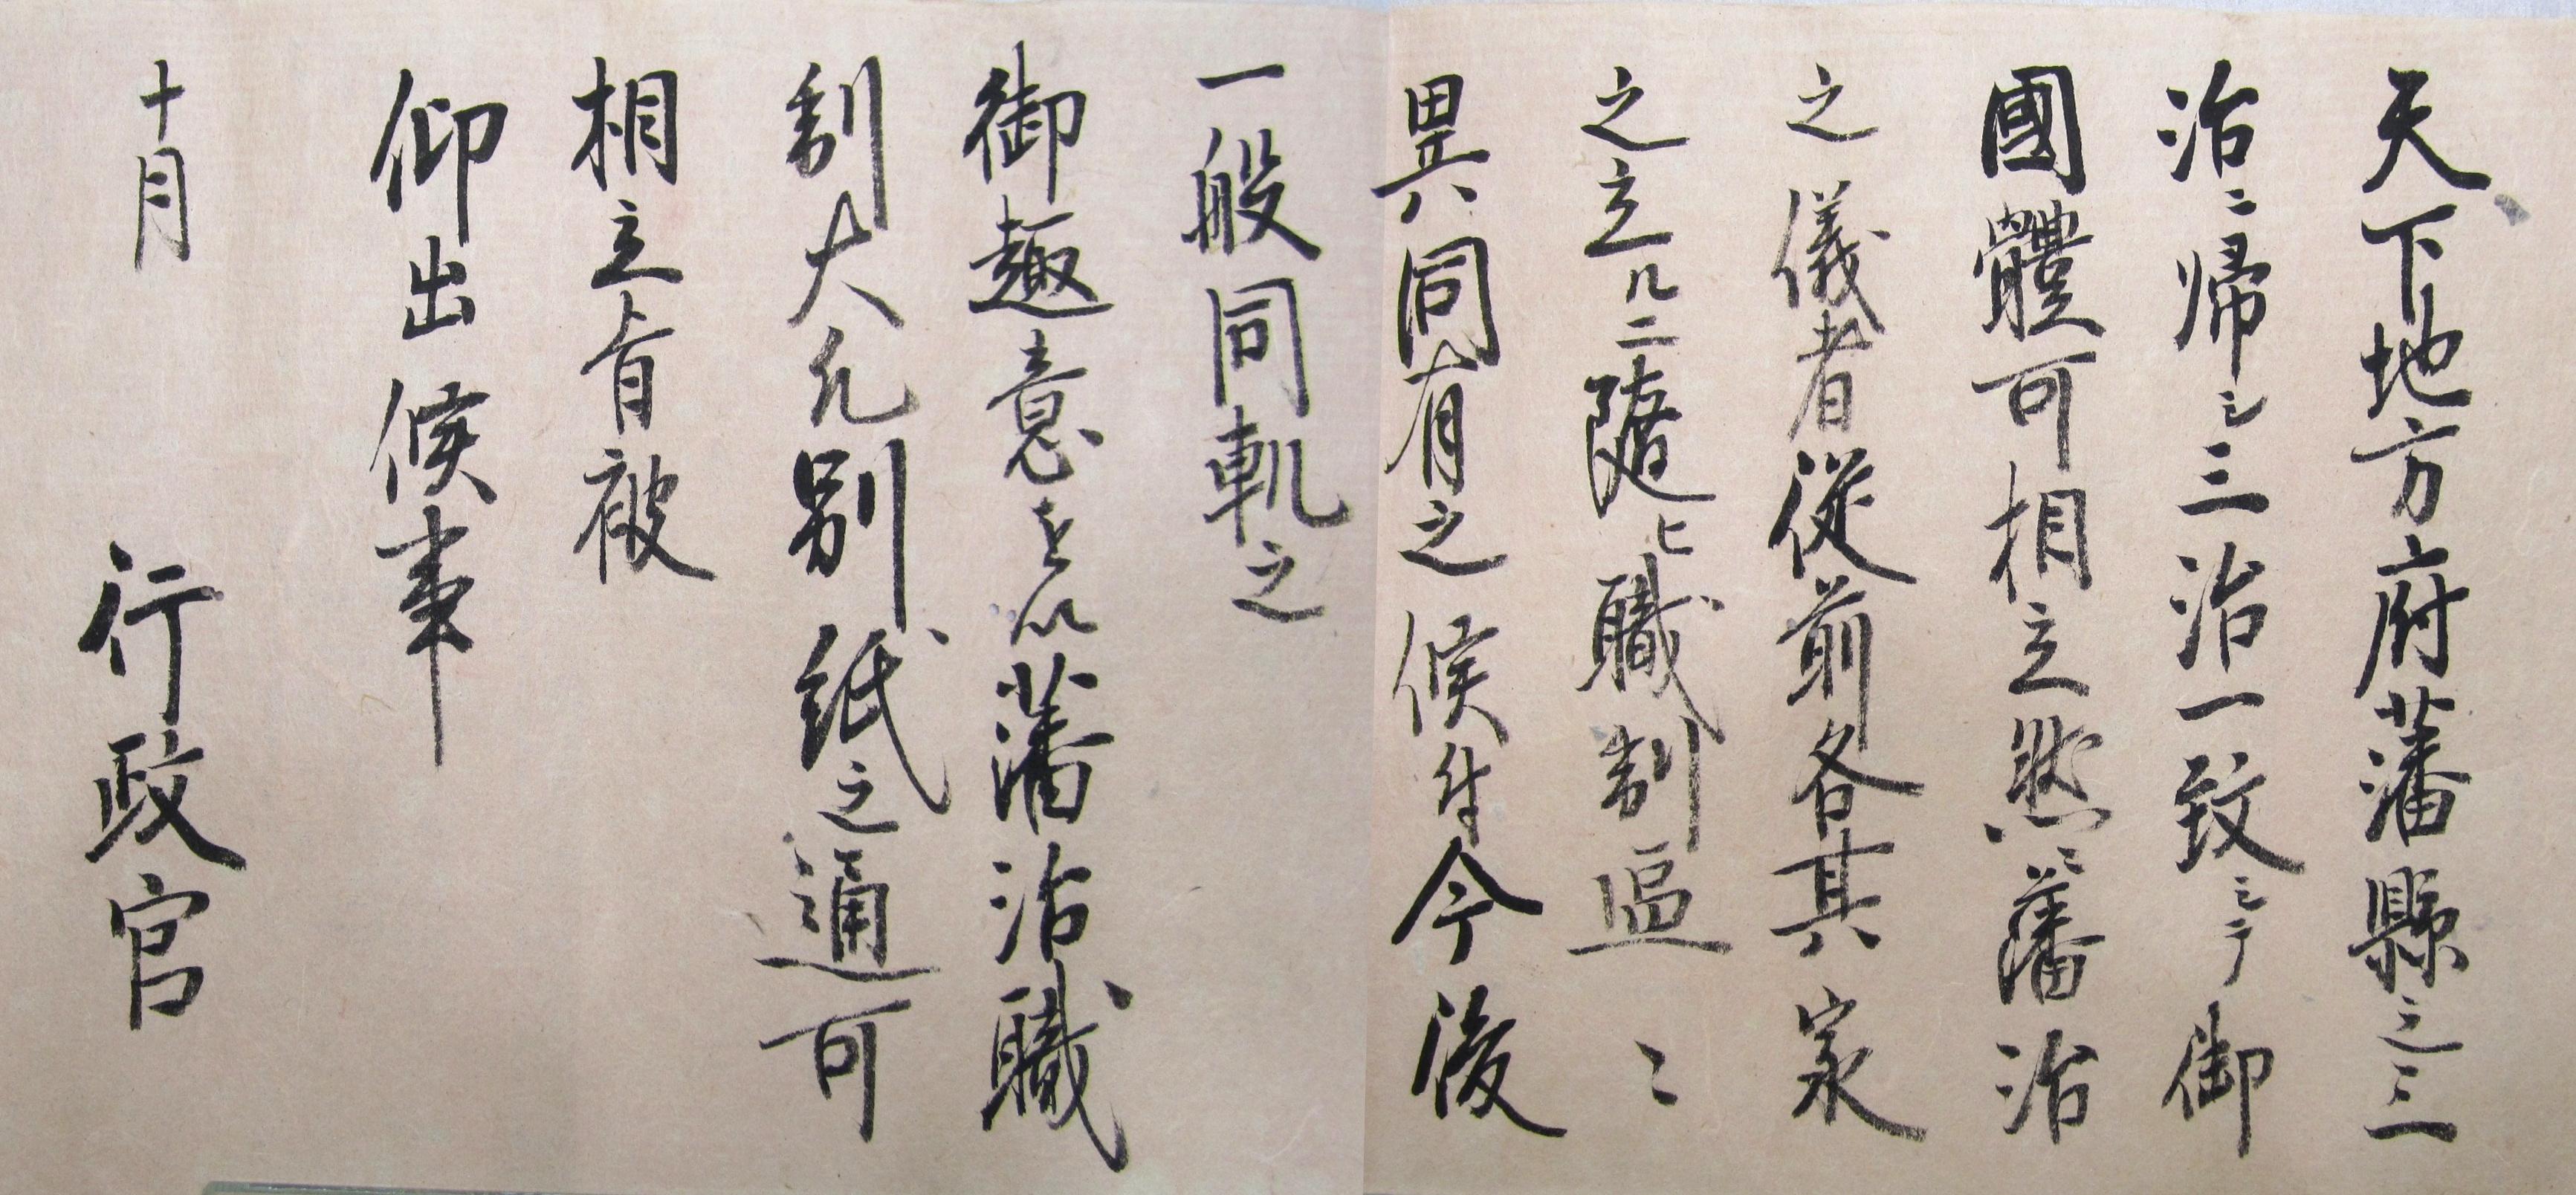 天下地方府藩縣之三
治ニ帰シ三治一致ニシテ御
國體可相立然ニ藩治
之儀者従前各其家
之立ルニ随ヒ職制區〻
異同有之候付今後
一般同軌之
御趣意を以藩治職
制大凡別紙之通可
相立旨被
仰出候事
十月　行政官